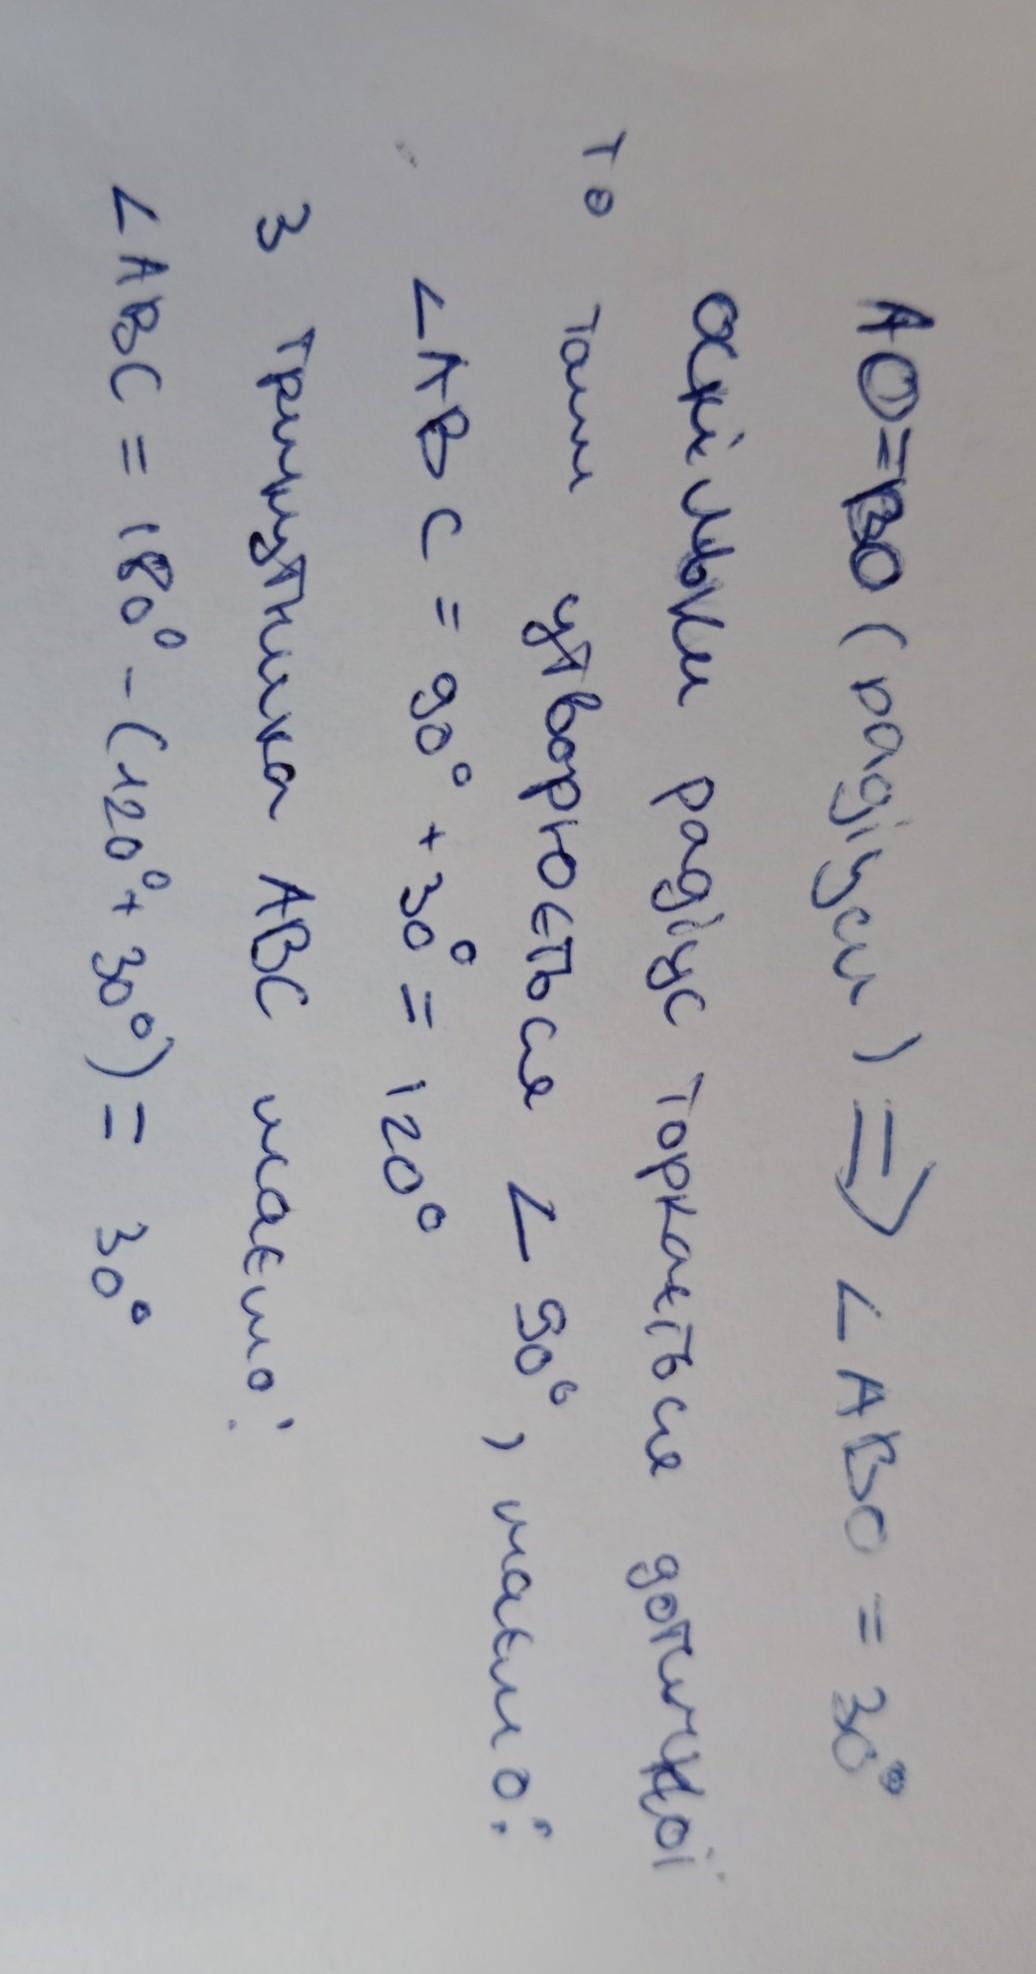 AO=BO (радіуси) ⇒ ∠ABO = 30°
Оскільки радіус торкається дотичної
то там утворюється ∠ 90°, маємо:
∠ABC = 90° + 30° = 120°
З трикутника ABC маємо:
∠ABC = 180° - (120° + 30°) = 30°